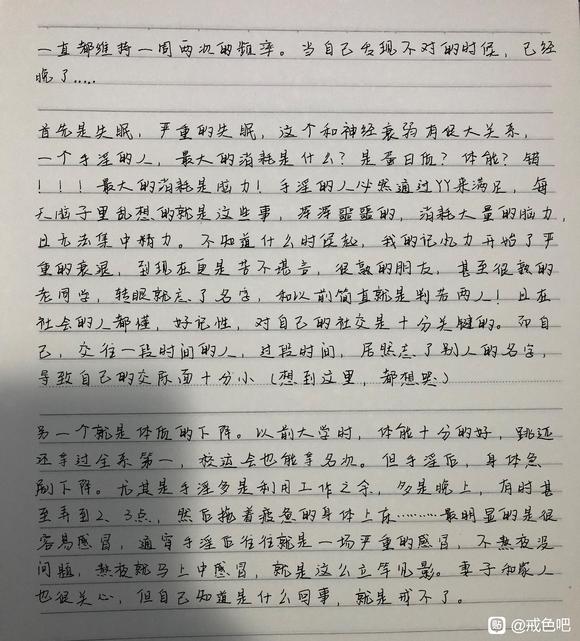 一直都维持一周两次的频率。当自己发现不对的时候，已经
晚了.....
首先是失眠，严重的失眠，这个和神经衰弱有很大关系，
一个手淫的人，最大的消耗是什么？是蛋白质？体能？错
！！！最大的消耗是脑力！手淫的人必然通过YY来满足，每
天脑子里乱想的就是这些事，浑浑噩噩的，消耗大量的脑力，
且无法集中精力。不知道什么时候起，我的记忆力开始了严
重的衰退，到现在更是苦不堪言，很熟的朋友，甚至很熟的
老同学，转眼就忘了名字，和以前简直就是判若两人！且在
社会的人都懂，好记性，对自己的社交是十分关键的。而自
己，交往一段时间的人，过段时间，居然忘了别人的名字，
导致自己的交际面十分小（想到这里，都想哭）
另一个就是体质的下降。以前大学时，体能十分的好，跳远
还拿过全系第一，校运会也能拿名次。但手淫后，身体急
剧下降。尤其是手淫多是利用工作之余，多是晚上，有时甚
至弄到2、3点，然后拖着疲惫的身体上床………最明显的是很
容易感冒，通宵手淫后往往就是一场严重的感冒，不熬夜没
问题，熬夜就马上中感冒，就是这么立竿见影。妻子和家人
也很关心，但自己知道是什么回事，就是戒不了。
贴 @戒色吧